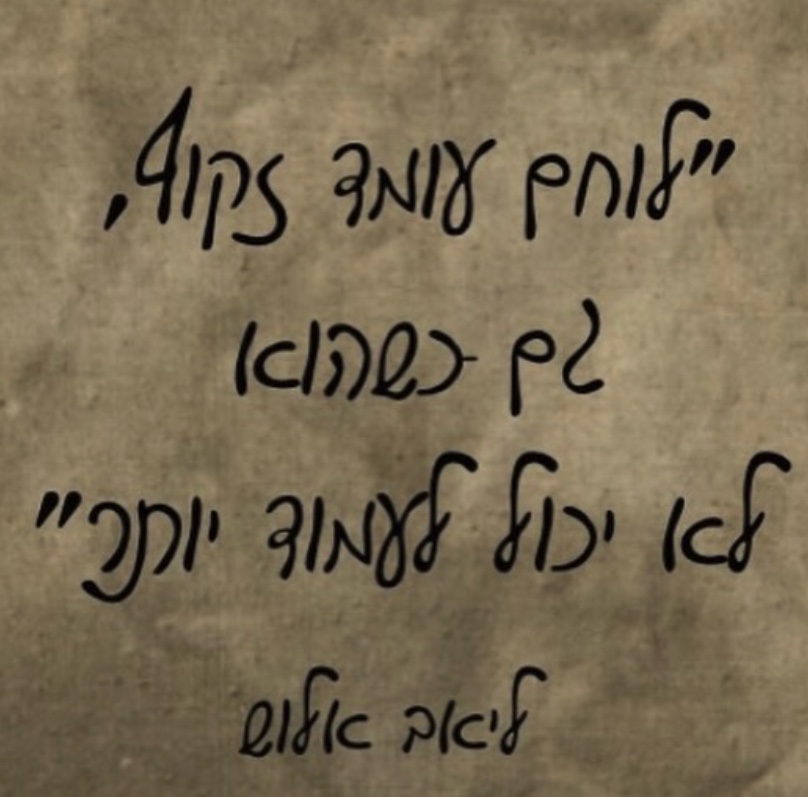 "לוחם עומד זקוף,
גם כשהוא
לא יכול לעמוד יותר"
ליאב אלוש